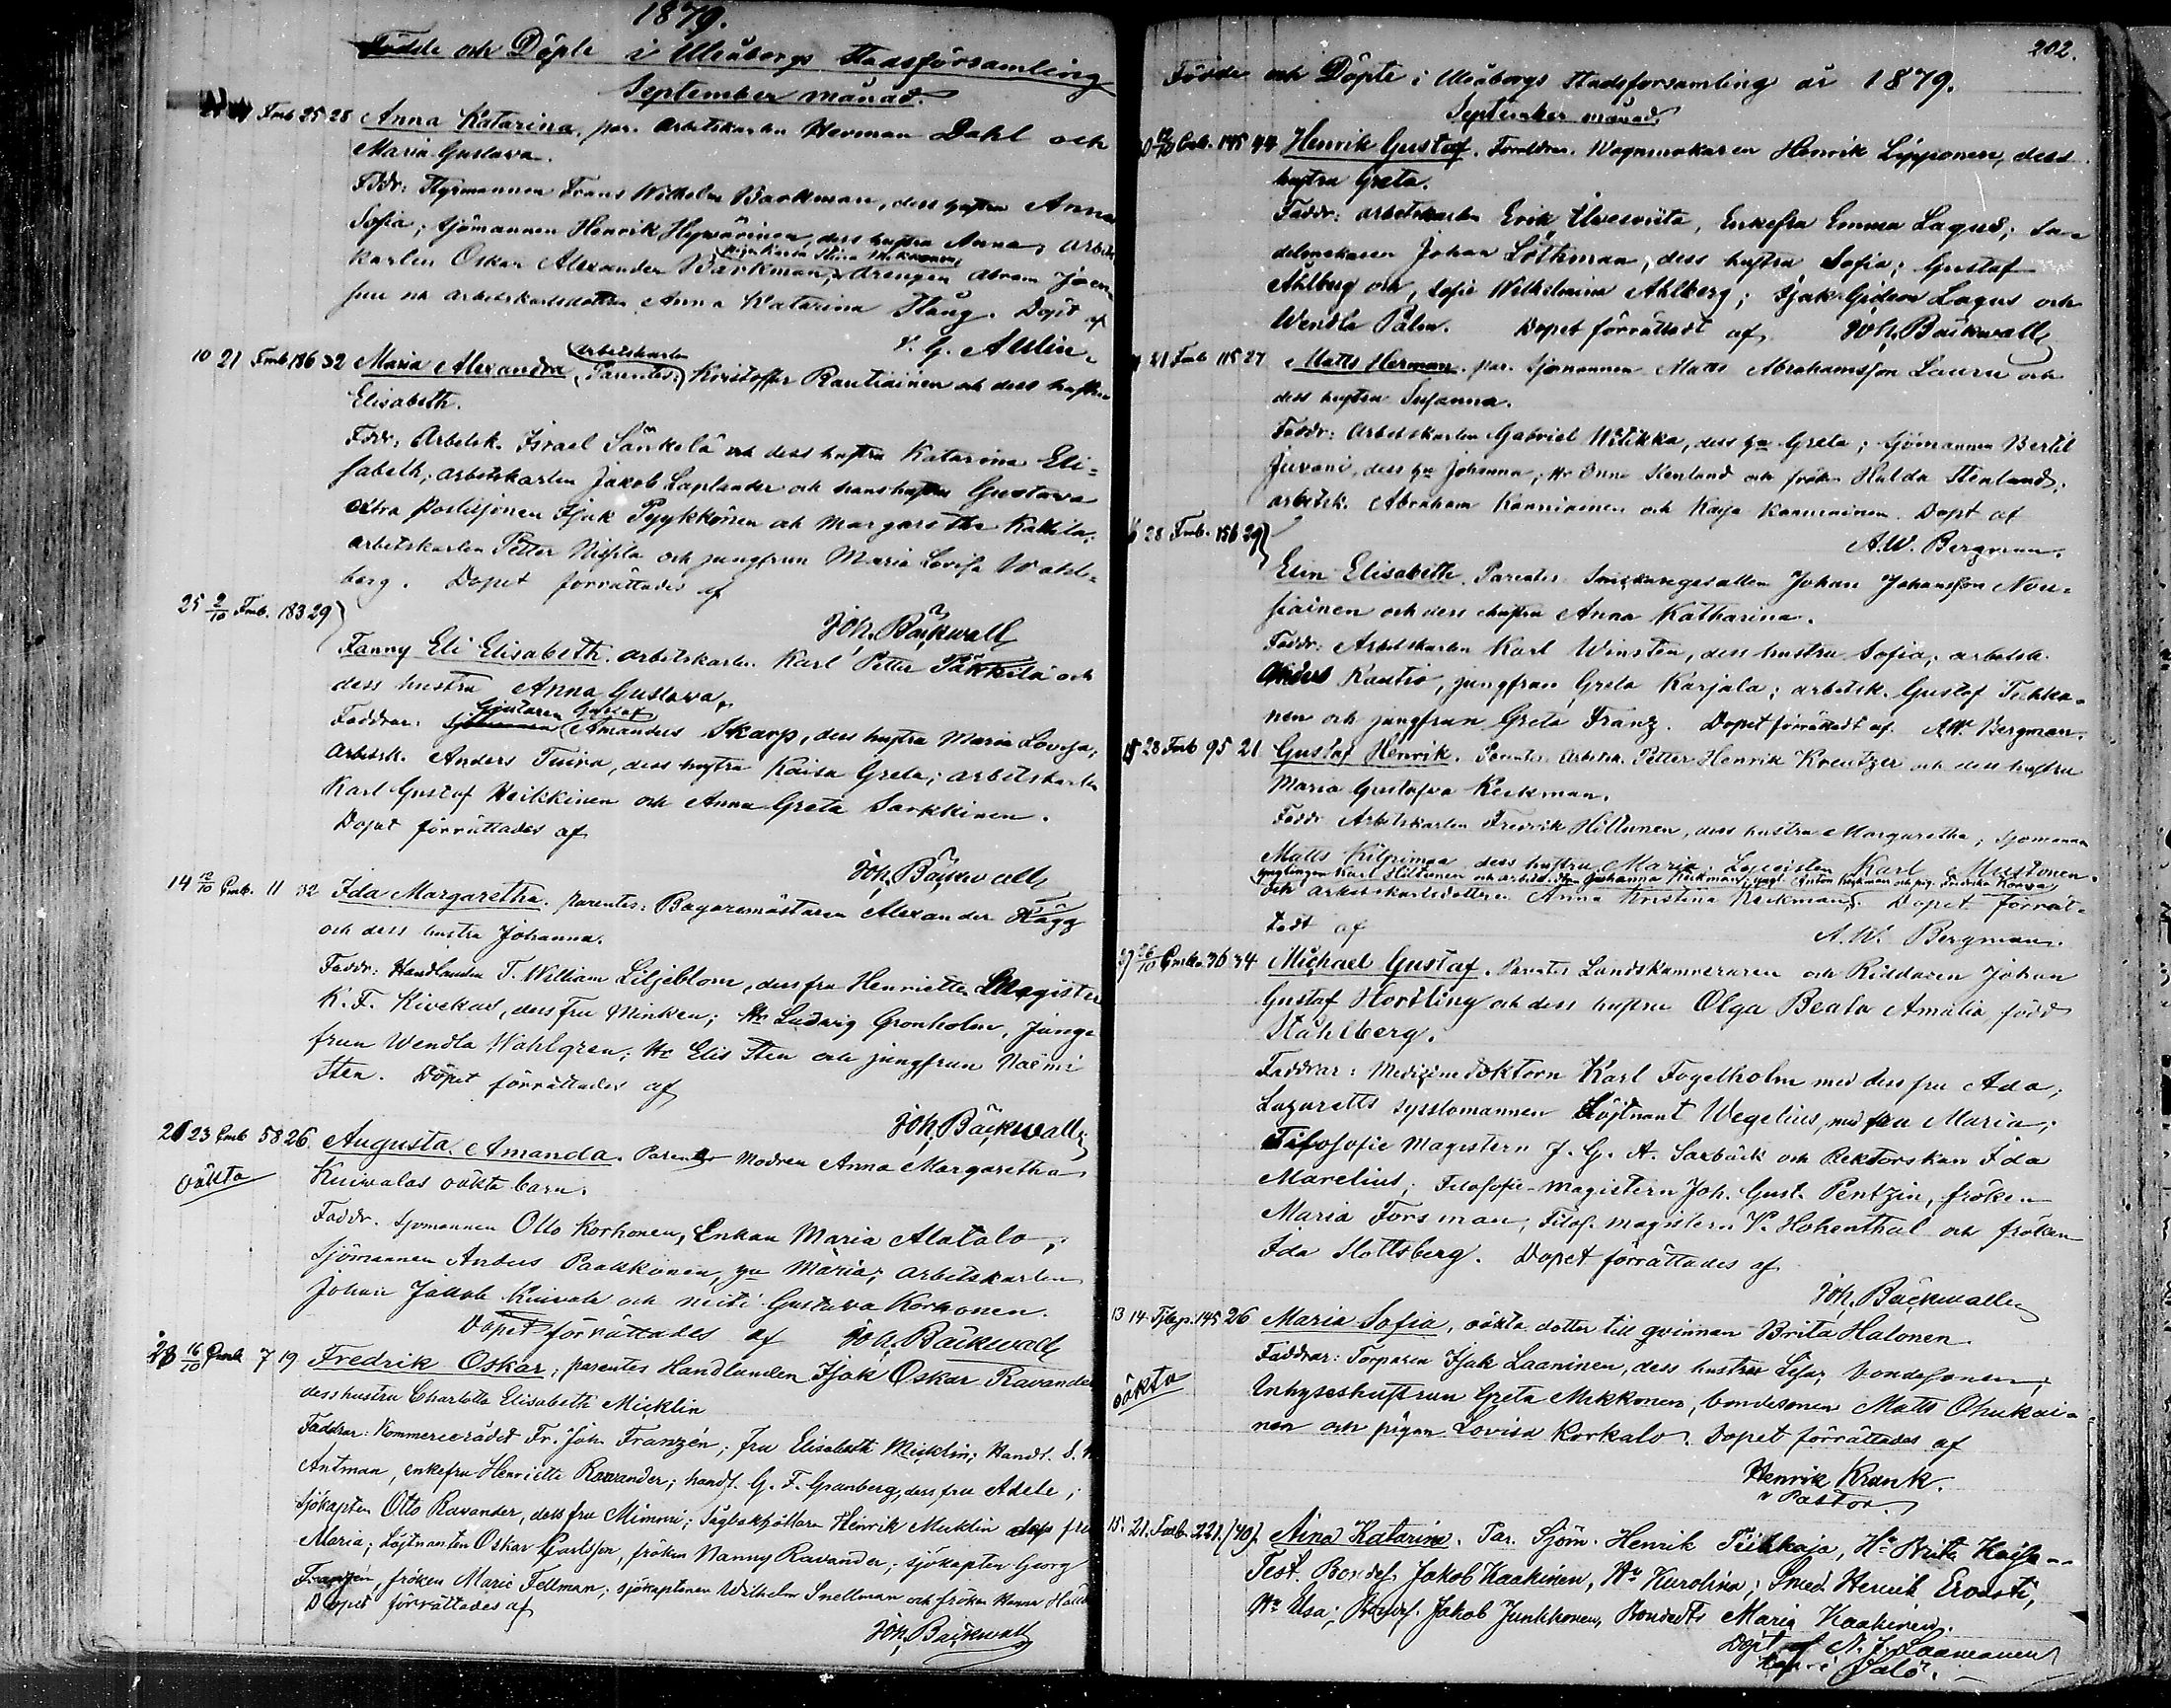 1879.
Födde och Döpte i Uleåborgs Stadsförsamling
September månad.
Fmb 25 28 Anna Katarina, par. Arbetskarlen Herman Dahl och
Maria Gustava.
Fddr: Styrmannen Frans Wilhelm Barkman, dess hustru Anna
Sofia; sjömannen Henrik Hyvärinen, dess hustru Anna; arbets
pigan Stina Mikkonen
karlen Oskar Alexander Barkman, drengen Abram
och arbetskarlsdottren Anna Katarina Haug. Döpt af
V. G. Aulin.
arbetskarlen
10 21 Fmb 186 32 Maria Alexandra, Parentes: Kristoffer Rautiainen och dess hustru
Elisabeth.
Fddr: Arbetsk. Israel Sänkelä och dess hustru Katarina Eli=
sabeth; arbetskarlen Jakob Laplander och hans hustru Gustava
extra postiljonen Isak Pyykkönen och Margaretha Kallila;
arbetskarlen Petter Nissilä och jungfrun Maria Lovisa Wahl=
berg. Dopet förrättades af
Joh. Bäckwall
25 2/10 Fmb. 183 29
Fanny Eli Elisabeth. arbetskarlen Karl Petter Päkkilä och
dess hustru Anna Gustava.
Gustaf
Faddrar: Amandus Skarp, dess hustru Maria Lovisa;
Arbetsk. Anders Tuira, dess hustru Kaisa Greta; arbetskarlen
Karl Gustaf Heikkinen och Anna Greta Sarkkinen.
Dopet förrättades af
Joh. Bäckwall
14 12/10 Fmb. 11 32 Ida Margaretha. parentes: Bagaremästaren Alexander Rägg
och dess hustru Johanna.
Faddr: Handlanden T. William Liljeblom, dess fru Henriette; Magister
K. F. Kivekäs, dess fru Minken; Hr Ludvig Grönholm, Jung=
frun Wendla Wahlgren; Hr Elis Sten och jungfrun Naëmi
Sten. Dopet förrättades af
Joh. Bäckwall
21 23 Fmb 58 26. Augusta Amanda. Parentes Modren Anna Margaretha
oäkta Kuivalas oäkta barn.
Faddr. Sjömannen Otto Korhonen, Enkan Maria Alatalo;
Sjömannen Anders Paakkonen, Maria; arbetskarlen
Johan Jakob Kuivala och neiti Gustava Korhonen.
Dopet förrättades af Joh. Bäckwall
16/10 7 19 Fredrik Oskar; parentes Handlanden Isak Oskar Ravander
dess hustru Charlotta Elisabeth Micklin
Faddrar: Kommercerådet Fr. Joh. Franzén; fru Elisabeth Micklin; Handl. S.
Antman, enkefru Henriette Ravander; handl. G. F. Granberg, dess fru Adele;
Sjökapten Otto Ravander, dess fru Mimmi; Henrik Micklin dess fru
Maria; Löjtnanten Oskar Carlsson, fröken Nanny Ravander; sjökapten Georg
Franzen, fröken Marie Fellman; sjökaptenen Wilhelm Snellman och fröken Hanna
Dopet förrättades af
Joh. Bäckwall
202.
Födde och Döpte i Uleåborgs Stadsförsamling år 1879.
September månad.
12/10 145 44 Henrik Gustaf. Föräldrar. Wagnmakaren Henrik Lipponen, dess
hustru Greta.
Faddr: arbetskarlen Erik Ylivesiviita, Enkefru Emma Lagus; Sa=
delmakaren Johan Löthman, dess hustru Sofia; Gustaf
Ahlberg och, Sofie Wilhelmina Ahlberg; Isak Gideon Lagus och
Wendla Palm. Dopet förrättadt af Joh. Bäckwall
21 Fmb 115 27 Matts Herman. par. Sjömannen Matts Abrahamsson Lauru och
dess hustru Susanna.
Faddr: Arbetskarlen Gabriel Wilikka, dess Greta; Sjömannen Bertil
Juvani, dess Johanna; Hr Onni Stenlund och frök. Hulda Stenlund;
arbetsk. Abraham Kanniainen och Kaija Kanniainen. Döpt af
A.W. Bergman.
28 Fmb. 156 29
Elin Elisabeth. Parentes Johan Johansson Nou=
siainen och dess hustru Anna Katharina.
Faddr: Arbetskarlen Karl Winsten, dess hustru Sofia; arbetsk.
Anders Rautio, jungfrun Greta Karjala; arbetsk. Gustaf Tikka=
nen och jungfrun Greta Franz. Dopet förrättadt af A.W. Bergman.
28 Fmb 95 21 Gustaf Henrik. Parentes Arbetsk. Petter Henrik Kreutzer och dess hustru
Maria Gustafva Keckman.
Faddr Arbetskarlen Fredrik Hiltunen, dess hustru Margaretha; sjömannen
Matts Kilpimaa dess hustru Maria. Karl Mustonen
ynglingen Karl Hiltunen och Johanna Keckman; yngl. Anton Keckman och pig. Fredrika
och arbetskarlsdottren Anna Kristina Keckman. Dopet förrät=
tadt af
A. W. Bergman.
26/10 36 34 Michael Gustaf. Parentes Landskamreraren och Riddaren Johan
Gustaf Hortling och dess hustru Olga Beata Amalia född
Ståhlberg.
Faddrar: Medicinedoktorn Karl Fogelholm med dess fru Ada;
Lazaretts sysslomannen Löjtnant Wegelius, med fru Maria;
Filosofie Magistern J. G. A. Saxbäck och Rektorskan Ida
Marelius; Filosofie-Magistern Joh. Gust. Pentzin, fröken
Maria Forsman; Filos. magistern V. Hohenthal och fröken
Ida Slottsberg. Dopet förrättades af
Joh. Bäckwall
13 14 145 26 Maria Sofia, oäkta dotter till qvinnan Brita Halonen.
oäkta Faddrar: Torparen Isak Laaninen, dess hustru Lisa; bondesonen;
Inhyseshustrun Greta Mikkonen, bondesonen Matts Ohukai=
nen och pigan Lovisa Korkalo. Dopet förrättades af
Henrik Krank.
v Pastor.
15. 21. Fmb. 221. Aina Katarina. Par. Sjöm. Henrik Piikkaja, Hu Brita Kaisa
Test. Bondes. Jakob Kaakinen, Hu Karolina; Smed. Henrik Eronsti,
Hu Ulsa; Bondes. Jakob Junkkonen, Maria Kaakinen.
Döpt af N. J. Laamanen
i Salo.